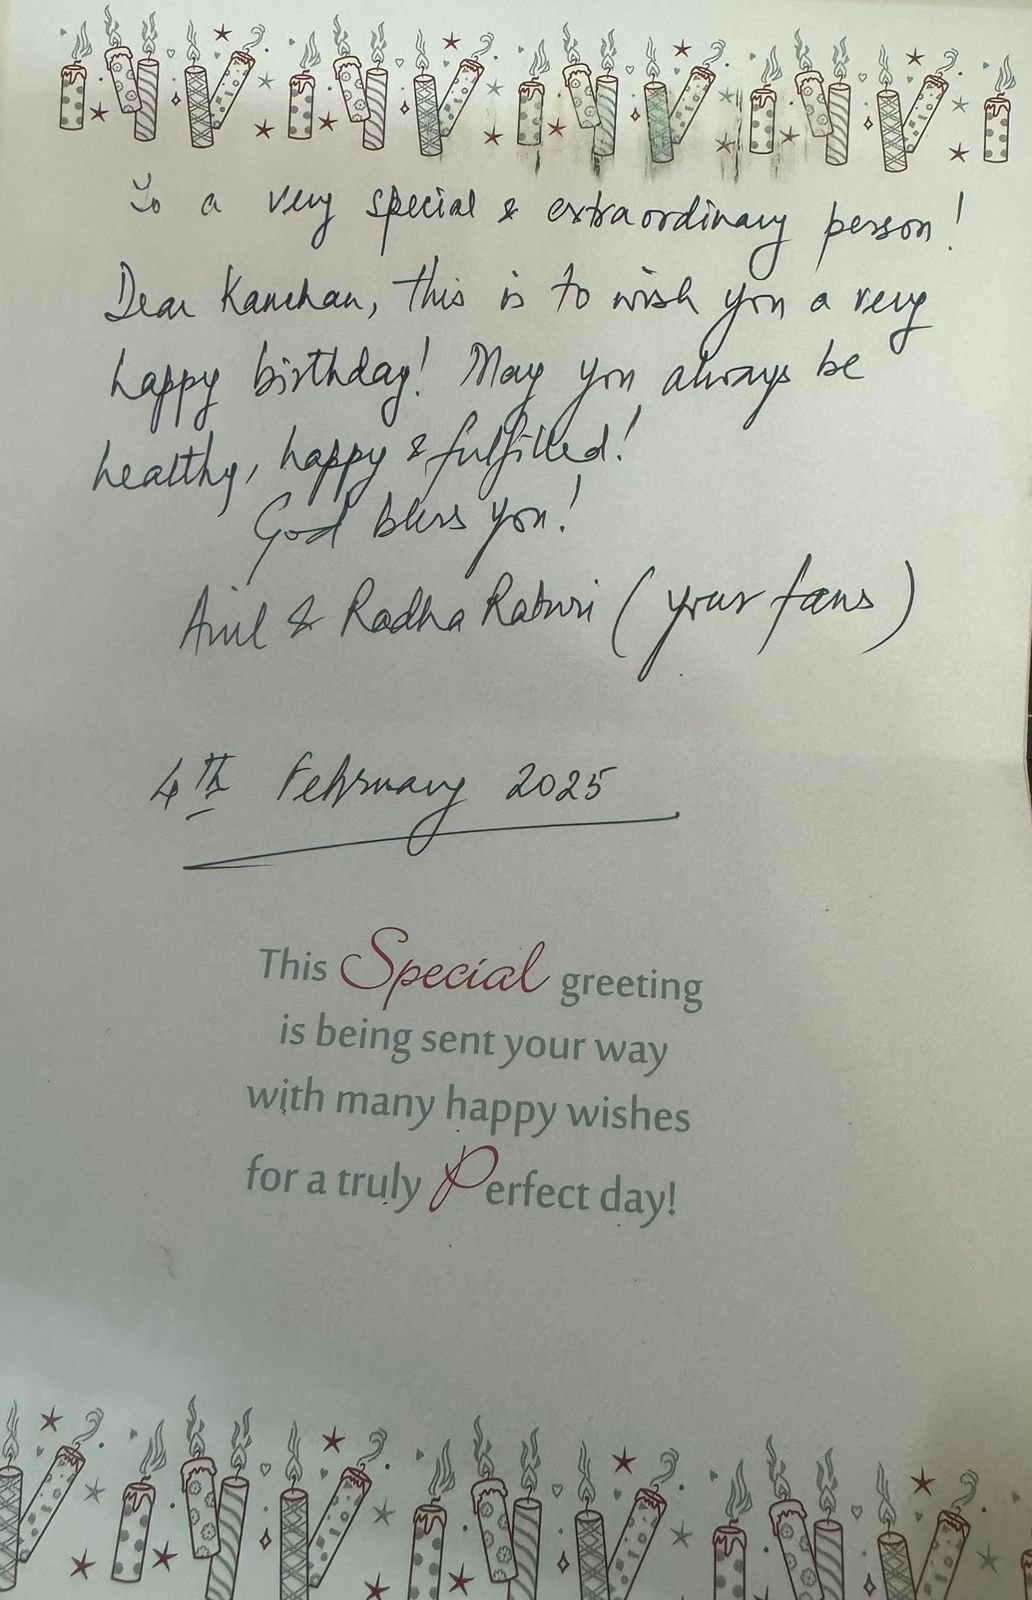 To a very special & extraordinary person!
Dear Kanchan, this is to wish you a very
happy birthday! May you always be
healthy, happy & fulfilled!
God bless you!
Anil & Radha Raturi (your fans)
4th February 2025
This Special greeting
is being sent your way
with many happy wishes
for a truly Perfect day!